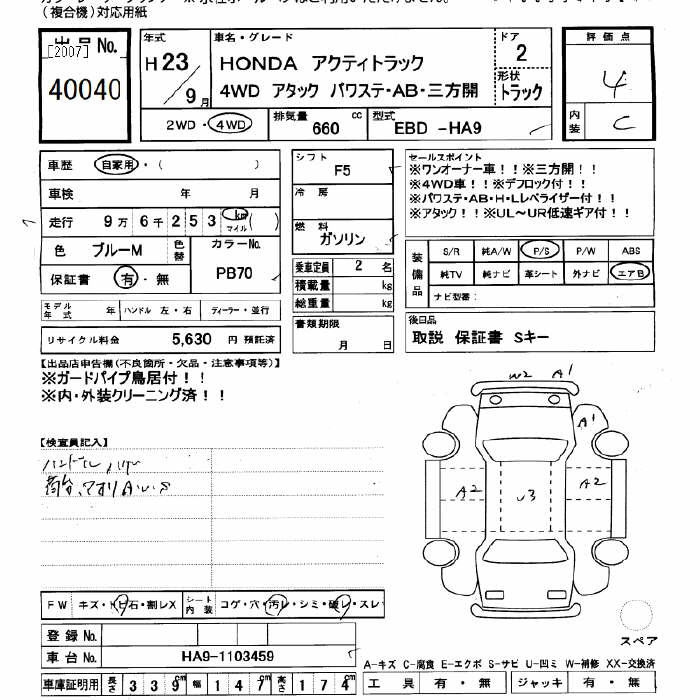 (複合機)対応用紙
出品No.
[2007]
40040
年式
H23/9月
車名・グレード
HONDA アクティトラック
4WD アタック パワステ・AB・三方開
ドア
2
形状
トラック
評価点
4
内装
C
2WD・4WD
排気量
660 cc
型式
EBD -HA9
車歴 自家用・( )
車検 年 月
走行 9万6千253 km マイル ( )
色 ブルーM
色替
カラーNo.
PB70
保証書 有・無
シフト
F5
冷房
燃料
ガソリン
乗車定員 2 名
積載量 kg
総重量 kg
セールスポイント
※ワンオーナー車!!※三方開!!
※4WD車!!※デフロック付!!
※パワステ・AB・H・Lレベライザー付!!
※アタック!!※UL~UR低速ギア付!!
装備品
S/R 純A/W P/S P/W ABS
純TV 純ナビ 革シート 外ナビ エアB
ナビ型番:
モデル年式 年 ハンドル 左・右 ディーラー・並行
リサイクル料金 5,630 円 預託済
書類期限
月 日
後日品
取説 保証書 Sキー
【出品店申告欄(不良箇所・欠品・注意事項等)】
※ガードパイプ鳥居付!!
※内・外装クリーニング済!!
W2 A1
A1
A2 U3 A2
【検査員記入】
FW キズ・トビ石・割レX
シート内装 コゲ・穴・汚レ・シミ・破レ・スレ
登録No.
車台No. HA9-1103459
スペア
A-キズ C-腐食 E-エクボ S-サビ U-凹ミ W-補修 XX-交換済
車庫証明用 長さ 339cm 幅 147cm 高さ 174cm
工具 有・無 ジャッキ 有・無